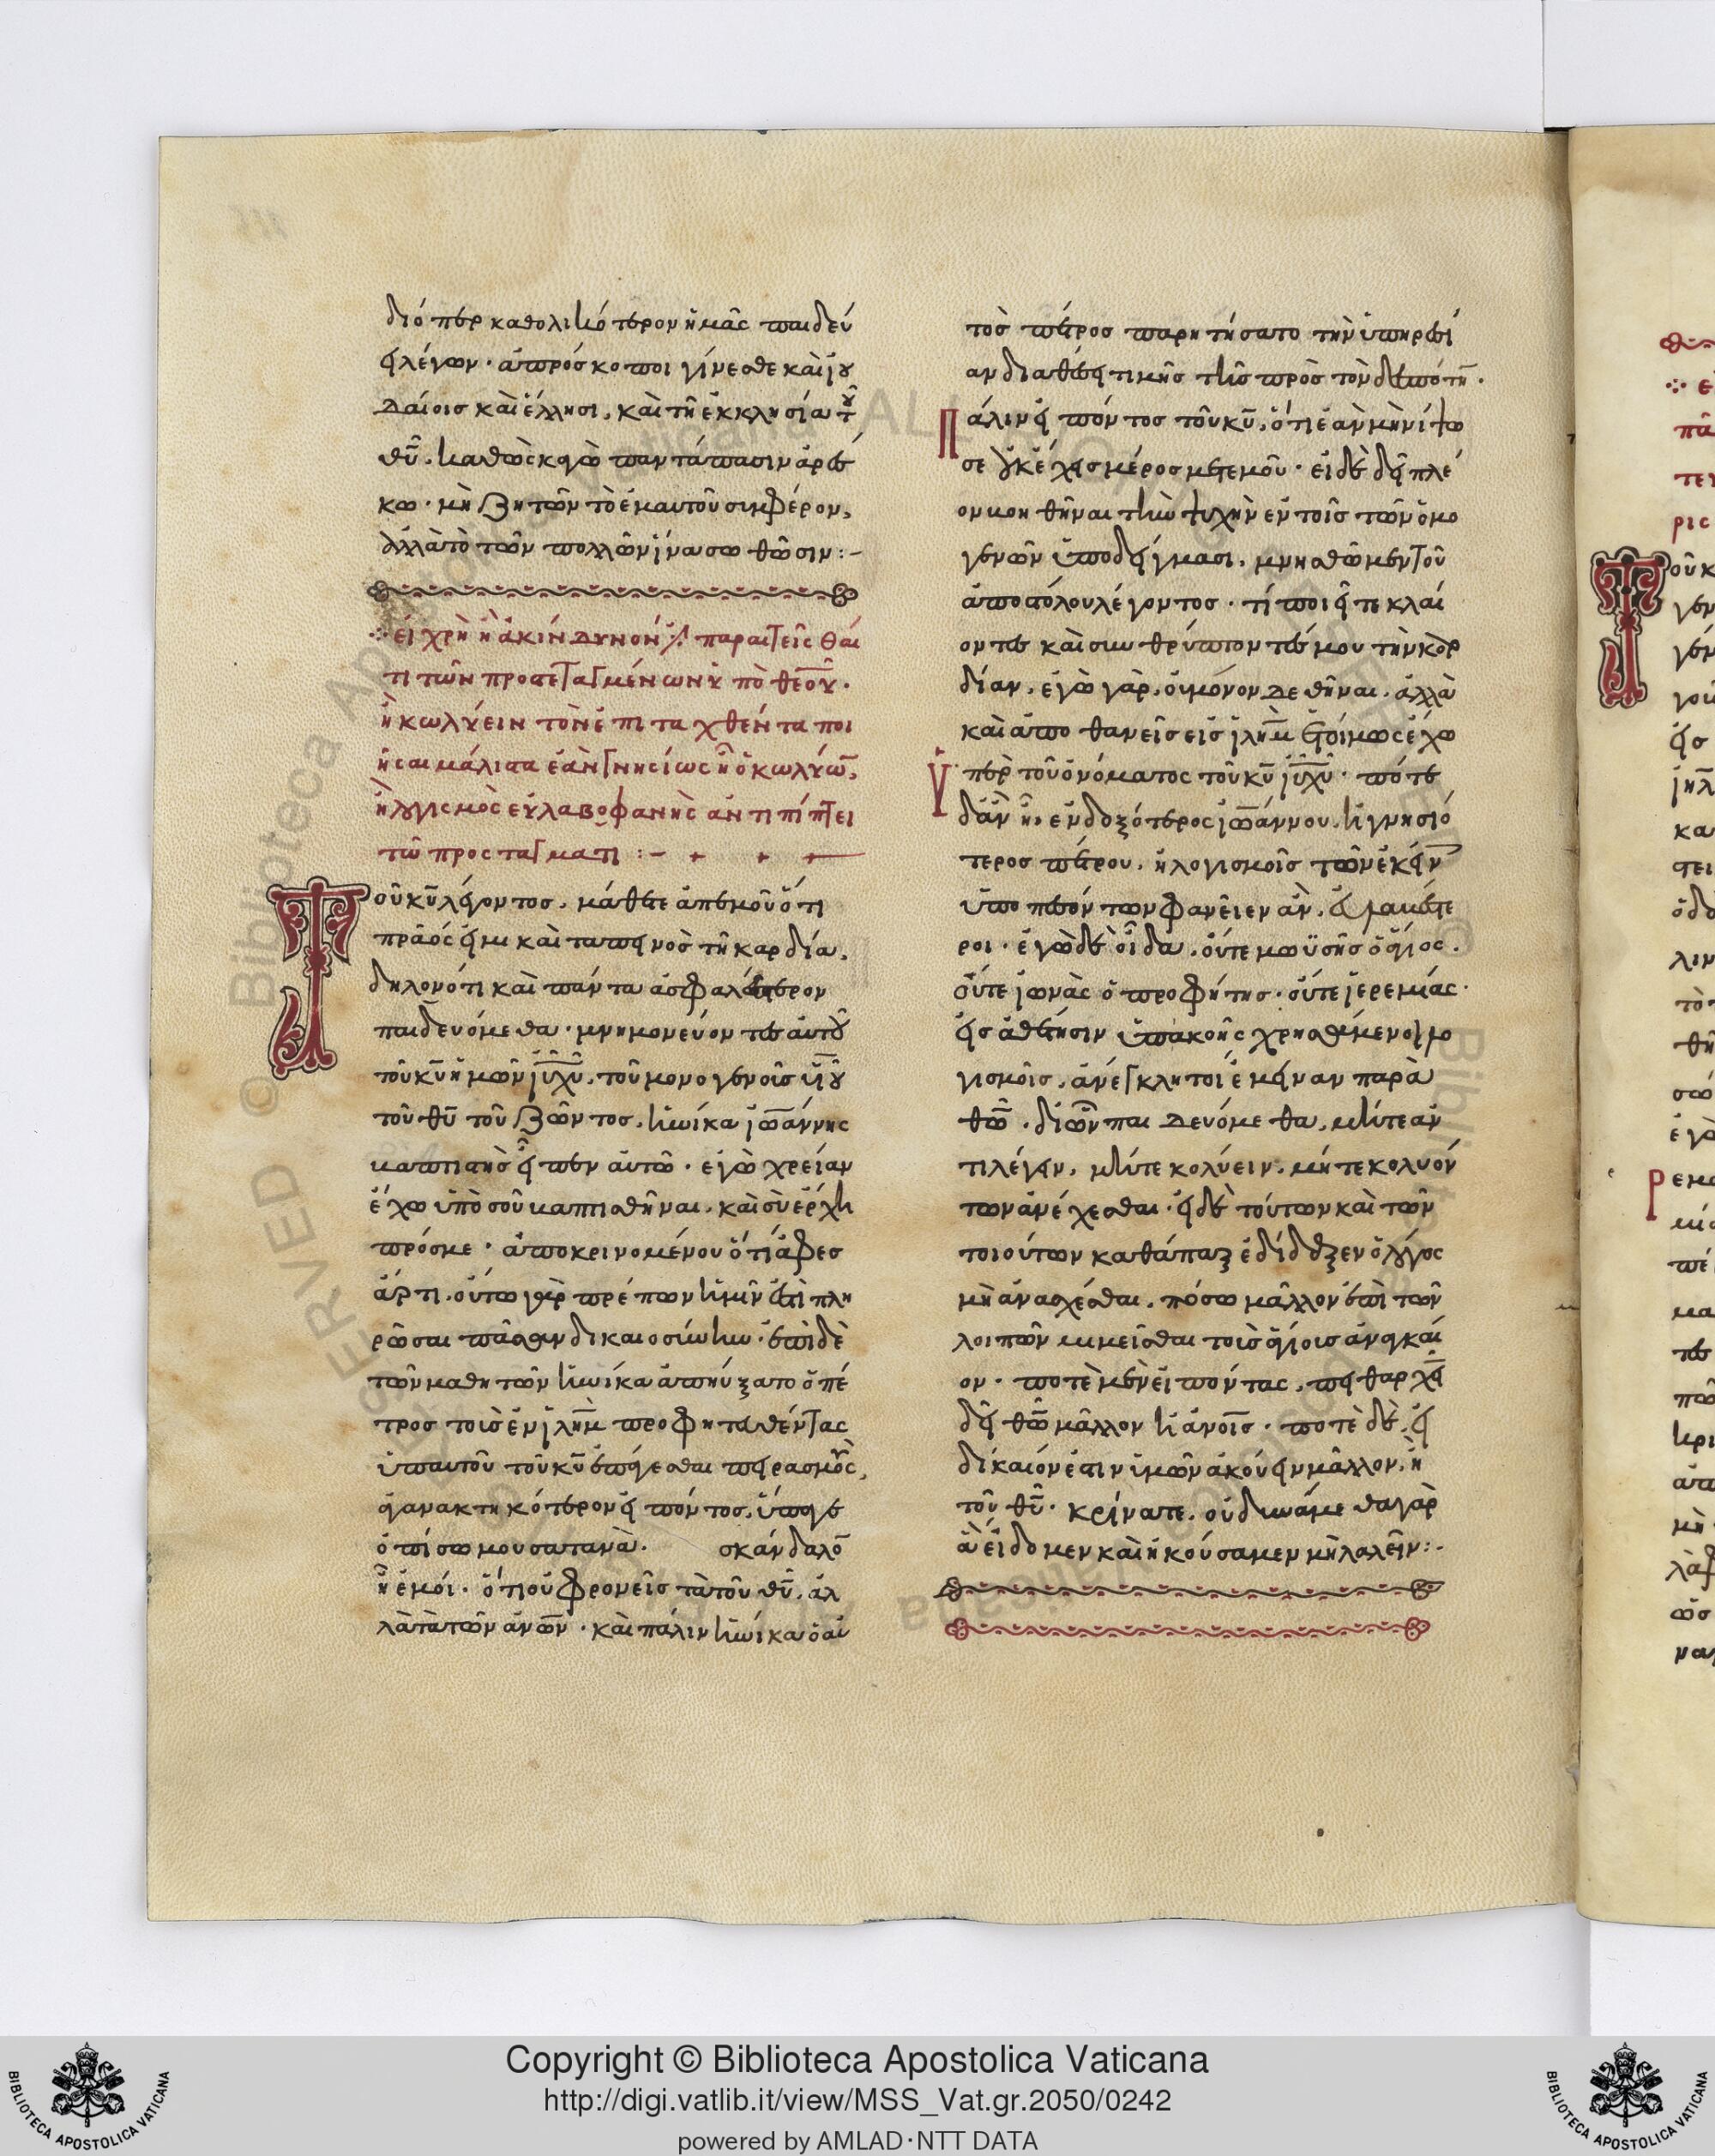 διόπερ καθολικότερον ἡμᾶς παιδεύ
ει λέγων· ἀπρόσκοποι γίνεσθε καὶ ἰου
δαίοις καὶ ἕλλησι, καὶ τῆ ἐκκλησία τοῦ
θῦ, καθὼς κἀγὼ πάντα πᾶσιν ἀρέσ
κω· μὴ ζητῶν τὸ ἐμαυτοῦ συμφέρον,
ἀλλὰ τὸ τῶν πολλῶν ἵνα σωθῶσιν:-
εἰ χρὴ ἢ ἀκίνδυνόν ἐστι παραιτεῖσθαί
τι τῶν προστεταγμένων ὑπὸ θεοῦ·
ἢ κωλύειν τὸν ἐπιταχθέντα ποι
ῆσαι μάλιστα ἐὰν γνησίως ἦ ὁ κωλύων,
ἢ λογισμὸς εὐλαβοφανὴς ἀντιπίπτει
τῶ προστάγματι :-
Τοῦ κῦ λέγοντος, μάθετε ἀπεμοῦ ὅτι
πρᾶός εἰμι καὶ ταπεινὸς τῆ καρδία,
δηλονότι καὶ πάντα ἀσφαλέστερον
παιδευόμεθα· μνημονεύοντες αὐτοῦ
τοῦ κῦ ἡμῶν ἰῦ χῦ, τοῦ μονογενοῦς ὑιοῦ
τοῦ θῦ τοῦ ζῶντος, ἡνίκα ἰωάννης
βαπτιστὴς εἶπεν αὐτῶ· ἐγὼ χρείαν
ἔχω ὑπὸ σοῦ βαπτισθῆναι, καὶ σὺ ἔρχη
πρόσμε· ἀποκρινομένου ὅτι ἄφες
ἄρτι, οὕτω γὰρ πρέπον ἡμῖν ἐστὶ πλη
ρῶσαι πᾶσαν δικαιοσύνην· ἐπὶ δὲ
τῶν μαθητῶν ἡνίκα ἀπηύξατο ὁ πέ
τρος τοῖς ἐν ἰλημ προφητευθέντας
ὑπαυτοῦ τοῦ κῦ ἐπάγεσθαι πειρασμοὺς,
ἀγανακτηκότερον εἰπόντος, ὕπαγε
ὀπίσω μου σατανᾶ. σκάνδαλον
ἦ ἐμοί· ὅτι οὐ φρονεῖς τὰ τοῦ θῦ, ἀλ
λὰ τὰ τῶν ἀνων· καὶ πάλιν ἡνίκα ὁ αὐ
τὸς πέτρος παρητήσατο τὴν ὑπηρεσί
αν διαθέσει τιμῆς τῆς πρὸς τὸν δεσπότην·
Πάλιν εἰπόντος τοῦ κῦ, ὅτι ἐὰν μὴ νίψω
σε οὐκ ἔχεις μέρος μετεμοῦ· εἰ δὲ δεῖ πλέ
ον κονηθῆναι τὴν ψυχὴν ἐν τοῖς τῶν ὁμο
γενῶν ὑποδείγμασι, μνησθῶμεν τοῦ
ἀποστόλου λέγοντος· τί ποιεῖτε κλαί
οντες καὶ συνθρύπτοντές μου τὴν καρ
δίαν, ἐγὼ γὰρ, οὐ μόνον δεθῆναι, ἀλλὰ
καὶ ἀποθανεῖν εἰς ἰλημ ἑτοίμως ἔχω
Ὑπὲρ τοῦ ὀνόματος τοῦ κῦ ἰῦ χῦ· πότε
δ᾽ ἂν ἦ, ἐνδοξότερος ἰωάννου, ἢ γνησιό
τερος πέτρου, ἢ λογισμοῖς τῶν ἐκείν
ὑποπεσόντων φανεῖεν ἂν,
ροι· ἐγὼ δὲ οἶδα, οὔτε μωϋσῆς ὁ ἅγιος.
οὔτε ἰωνὰς ὁ προφήτης· οὔτε ἱερεμίας·
εἰς ἀθέτησιν ὑπακοῆς χρησάμενοι λο
γισμοῖς, ἀνέγκλητοι ἔμειναν παρὰ
θῶ· δι ὧν παιδευόμεθα, μήτε ἀν
τιλέγειν, μήτε κολύειν, μήτε κολυόν
των ἀνέχεσθαι· εἰ δὲ τούτων καὶ τῶν
τοιούτων καθάπαξ ἐδίδαξεν ὁ λόγος
μὴ ἀνασχέσθαι, πόσω μᾶλλον ἐπὶ τῶν
λοιπῶν μιμεῖσθαι τοὺς ἁγίους ἀναγκαί
ον· ποτὲ μὲν εἰπόντας, πειθαρχεῖν
δεῖ θῶ μᾶλλον ἢ ἀνοις· ποτὲ δὲ, εἰ
δίκαιόν ἐστιν ὑμῶν ἀκούειν μᾶλλον, ἢ
τοῦ θῦ· κρίνατε. οὐ δυνάμεθα γὰρ
ἃ εἴδομεν καὶ ἠκούσαμεν μὴ λαλεῖν:-
Copyright © Biblioteca Apostolica Vaticana
http://digi.vatlib.it/view/MSS_Vat.gr.2050/0242
powered by AMLAD·NTT DATA